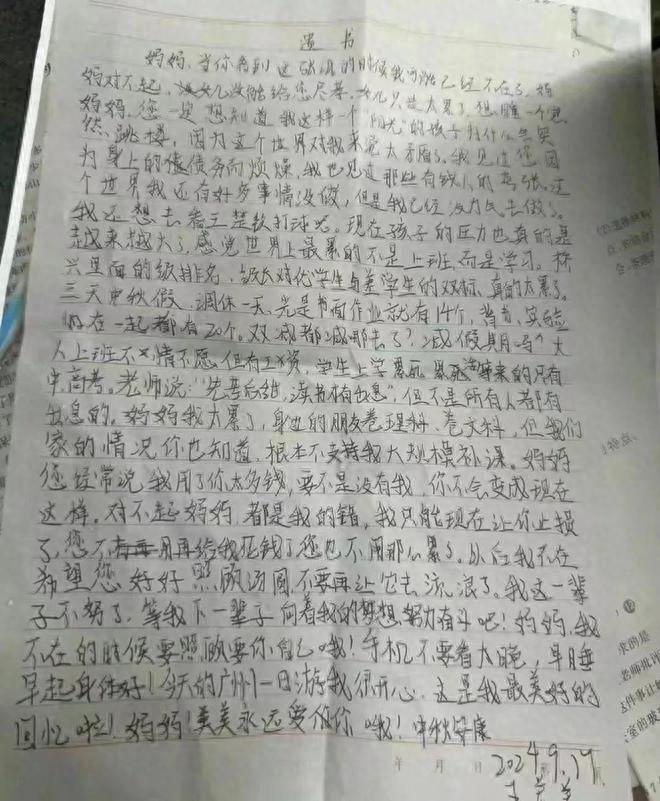 遗书
妈妈，当你看到这封信的时候我可能已经不在了，妈
妈对不起，女儿没能给您尽孝，女儿只是太累了，想睡一个觉
妈妈，您一定想知道我这样一个“阳光”的孩子为什么会突
然跳楼，因为这个世界对我来说太矛盾了。我见过您因
为身上的债务而烦燥，我也见过那些有钱人的夸张。这
个世界我还有好多事情没做，但是我已经没力气去做了。
我还想去看三楚软打球呢。现在孩子的压力也真的是
越来越大了，感觉世界上最累的不是上班，而是学习。校
兴里面的级排名，级长对优学生与差学生的双标，真的太累了。
三天中秋假，调休一天，光是书面作业就有14个，背书，实验
加在一起都有20个。双减都减哪去了？减假期吗？大
人上班不情不愿但有工资，学生上学累死累活等来的只有
中高考。老师说：“先苦后甜，读书才有出息”，但不是所有人都有
出息的。妈妈我太累了，身边的朋友卷理科，卷文科，但我们
家的情况你也知道，根本不支持我大规模补课。妈妈
您经常说我用了你太多钱，要不是没有我，你不会变成现在
这样。对不起妈妈，都是我的错，我只能现在让你止损
了，您不用再给我花钱了您也不用那么累了。以后我不在
希望您好好照顾汤圆，不要再让它去流浪了。我这一辈
子不努了，等我下一辈子向着我的梦想努力奋斗吧！妈妈，我
不在的时候要照顾要你自己哦！手机不要看太晚，早睡
早起身体好！今天的广州一日游我很开心，这是我最美好的
回忆啦！妈妈！美美永远爱你你哦！中秋安康
年 月 日
2024.9.17